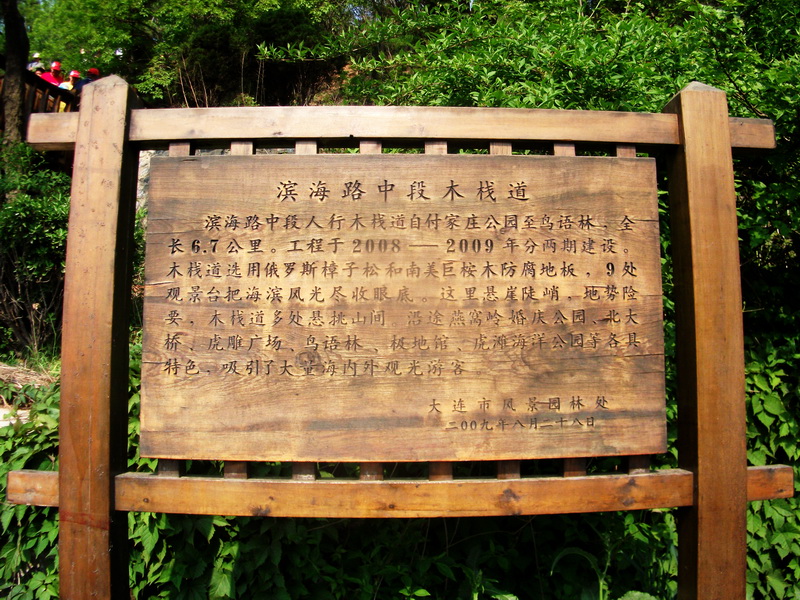 滨海路中段木栈道
滨海路中段人行木栈道自付家庄公园至鸟语林，全
长6.7公里。工程于2008——2009年分两期建设。
木栈道选用俄罗斯樟子松和南美巨桉木防腐地板，9处
观景台把海滨风光尽收眼底。这里悬崖陡峭，地势险
要，木栈道多处悬挑山间 沿途燕窝岭婚庆公园、北大
桥、虎雕广场、鸟语林、极地馆、虎滩海洋公园等各具
特色，吸引了大量海内外观光游客
大连市风景园林处
二00九年八月二十八日